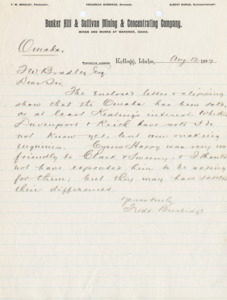 F. W. BRADLEY, PRESIDENT. FREDERICK BURBIDGE, ALBERT BURCH,
Bunker Hill & Sullivan Mining & Concentrating Company,
MINES AND WORKS AT WARDNER, IDAHO.
Omaha. Kellogg, Idaho, Aug 12
F. W. Bradley Esq
Dear Sir,
The enclosed letter & clipping
show that the Omaha has been sold,
or at least Keating's interest. Whether
Davenport & Reich have sold I do
not know yet, but am making
enquiries. Cyrus Happy was very un
friendly to Clark & Sweeny & I should
not have expected him to be acting
for them, but they may have settled
their differences.
Yours truly,
Fredk Burbidge